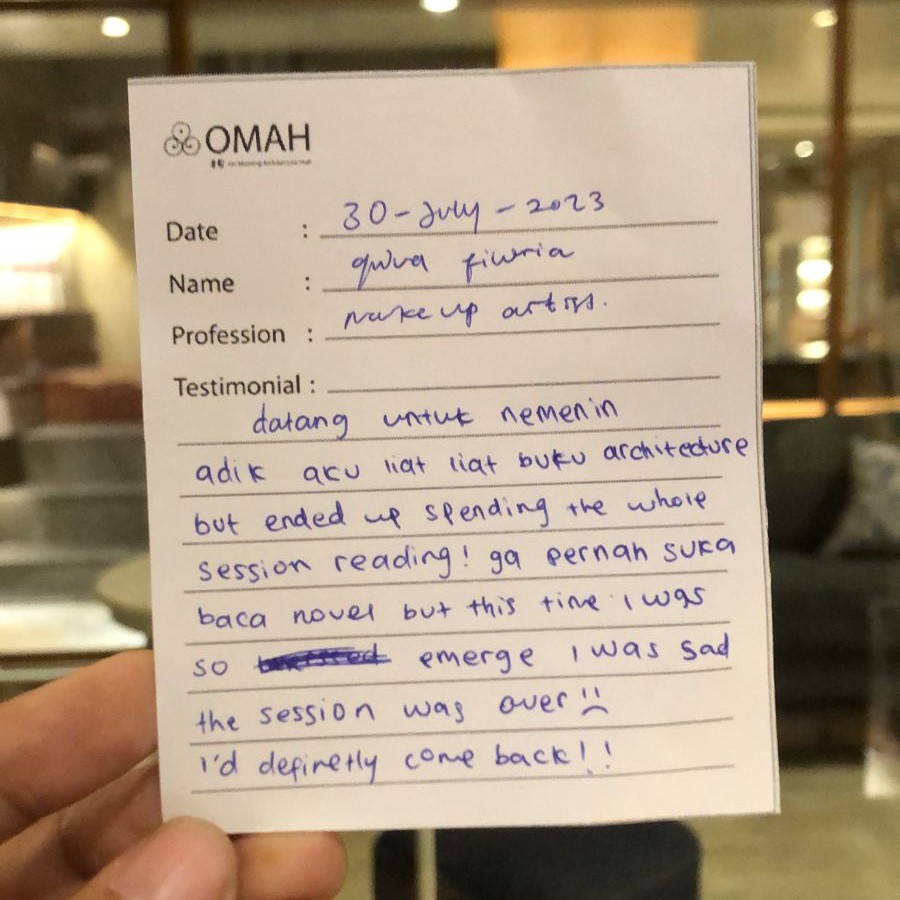 OMAH
Date : 30-July-2023
Name :
Profession : make up artist.
Testimonial :
datang untuk nemenin
adik aku liat liat buku architecture
but ended up spending the whole
session reading! ga pernah suka
baca novel but this time i was
so emerge i was sad
the session was over
i'd definetly come back!!